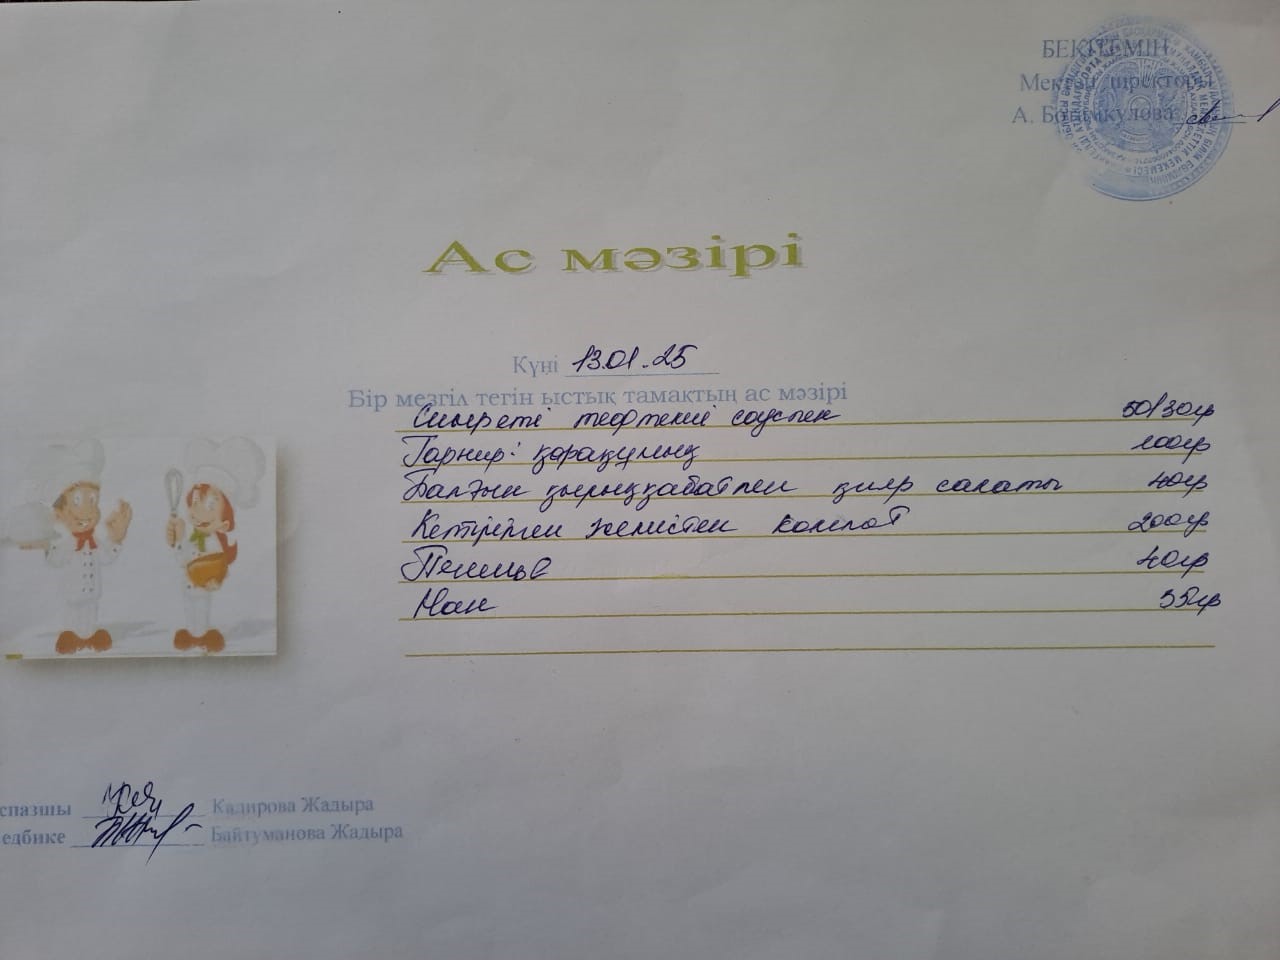 БЕКІТЕМІН
Мектеп директоры
А. Бошымкулова
Ас мәзірі
Күні 13.01.25
Бір мезгіл тегін ыстық тамақтың ас мәзірі
Сиыр еті тефтелиі соуспен 50/30гр
Гарнир: қарақұмық 100гр
Балғын қырыққабатпен қияр салаты 40гр
Кептірілген жемістен компот 200гр
Печенье 40гр
Нан 35гр
спазшы Кадирова Жадыра
едбике Байтуманова Жадыра